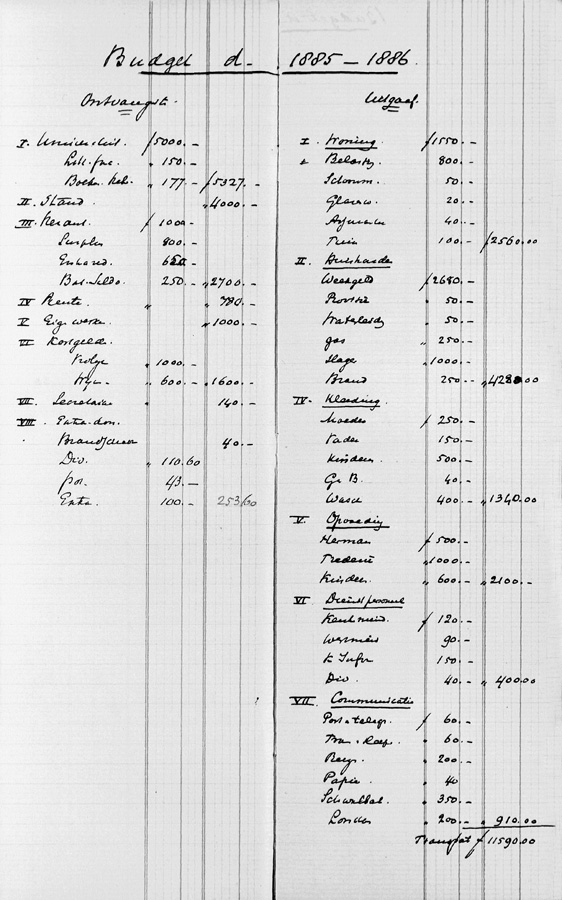 Budget d. 1885–1886
Ontvangst.
I. Universiteit f 5000.–
" 150.–
" 177.– f 5327.–
II. Stand " 4000.–
III. f 1000.–
Surplus 800.–
650
250.– " 2700.–
IV Rente " " 780.–
V Eig. werken " 1000.–
VI Kostgeld.
" 1000.–
" 600.– " 1600.–
VII. Secretaire " 140.–
VIII. Extra-don.
Brandschade 40.–
Div. " 110.60
43.–
Extra. 100.– 253.60
Uitgaaf.
I. Woning f 1550.–
Belasting 800.–
Schoorn. 50.–
Glazen. 20.–
40.–
Tuin 100.– f 2560.00
II. Huishouden
Weekgeld f 2680.–
Provisie " 50.–
Waterleidg " 50.–
gas " 250.–
Slager " 1000.–
Brand 250.– " 4280.00
IV. Kleeding.
Moeder f 250.–
Vader 150.–
Kinderen 500.–
Gr B. 40.–
Wasch 400.– " 1340.00
V. Opvoeding
Herman f 500.–
" 1000.–
Kinderen. " 600.– " 2100.–
VI Dienstpersoneel
Keukenmeid. f 120.–
Werkmeid 90.–
k Jufr 150.–
Div. 40.– " 400.00
VII. Communicatie
Post & telegr. f 60.–
Tram. " 60.–
Reizen " 200.–
Papier " 40
Schwalbal. " 350.–
Londen " 200.– " 910.00
Transport f 11590.00